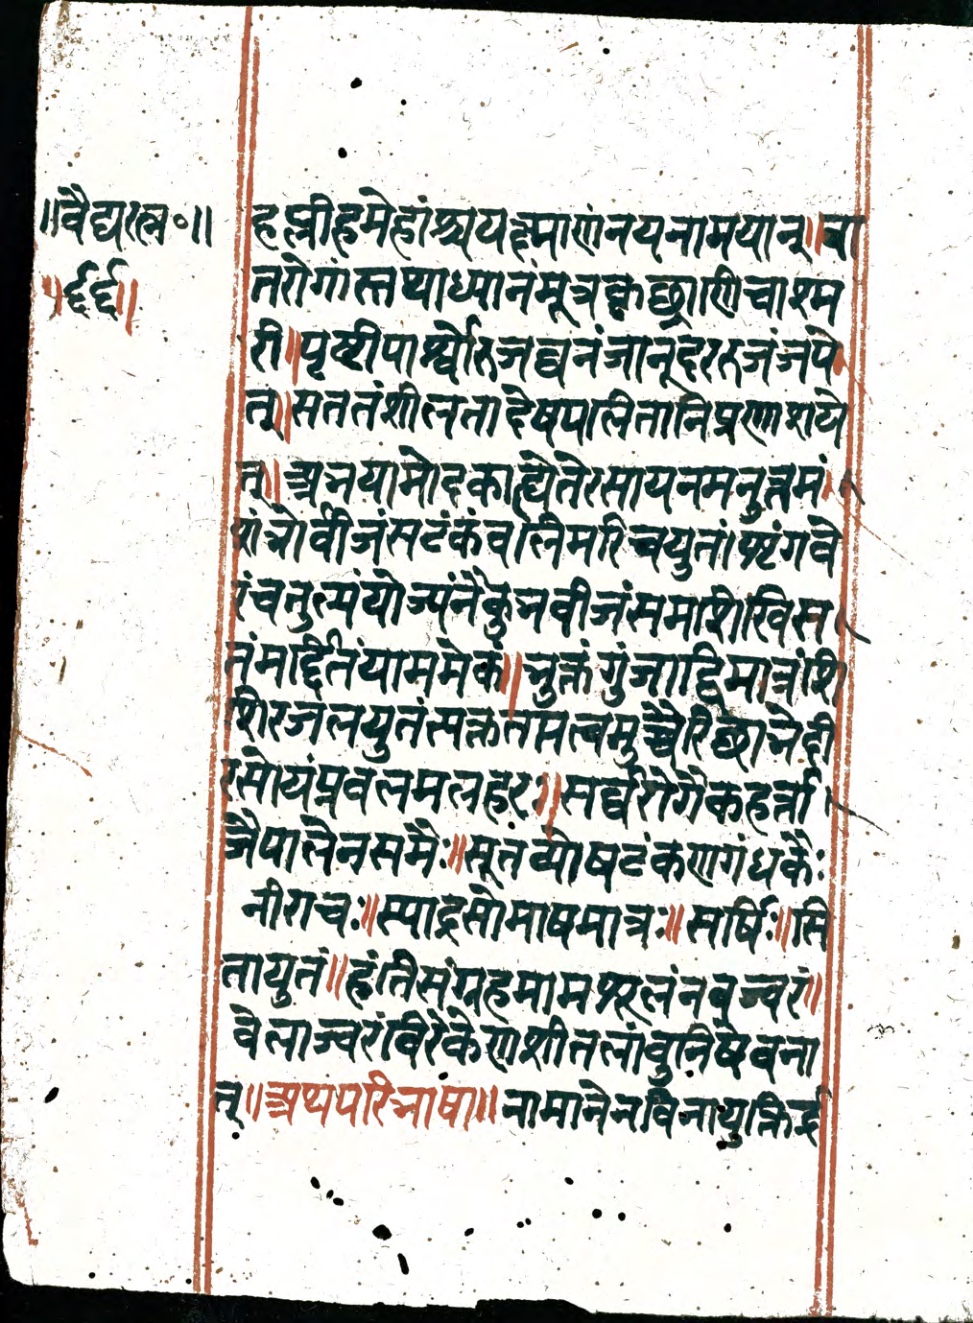 ॥वैद्यरत्न॰॥
॥६६॥
हप्लीहमेहांश्चयक्ष्माणंनयनामयान्॥वा
तरोगांस्तथाध्मानंमूत्रकृछ्राणिचाश्म
री॥पृष्टीपार्श्वोरुजघनंजानूदररुजंजपे
त्॥सततंशीलनादेषपालितानिप्रणाशये
त्॥अभयामोदकाह्येतेरसायनमनुत्तमं
शंभोर्वीजंसटंकंवलिमरिचयुतंशृंगवे
रंचतुल्यंयोज्यंनैकुंभवीजंसमशिखिस
तंमर्द्दितंयाममेकं॥चुक्तंगुंजाद्विमात्रंशि
शिरजलयुतंत्यक्ततप्तत्वमुच्चैरिछाभेदी
रसोयंप्रवलमलहरः॥सर्वरोगैकहर्त्ता
जैपालेनसमैः॥सूतव्योषटंकणगंधकैः
नीराचः॥स्याद्रसोमाषमात्रः॥सर्षिः॥सि
तायुतं॥हंतिसंग्रहमामशूलंनवज्वरं॥
वेलाज्वरंविरेकेणशीतलांवुनिषेवना
त्॥अथपरिभाषा॥नमानेनविनायुक्तिर्द्र